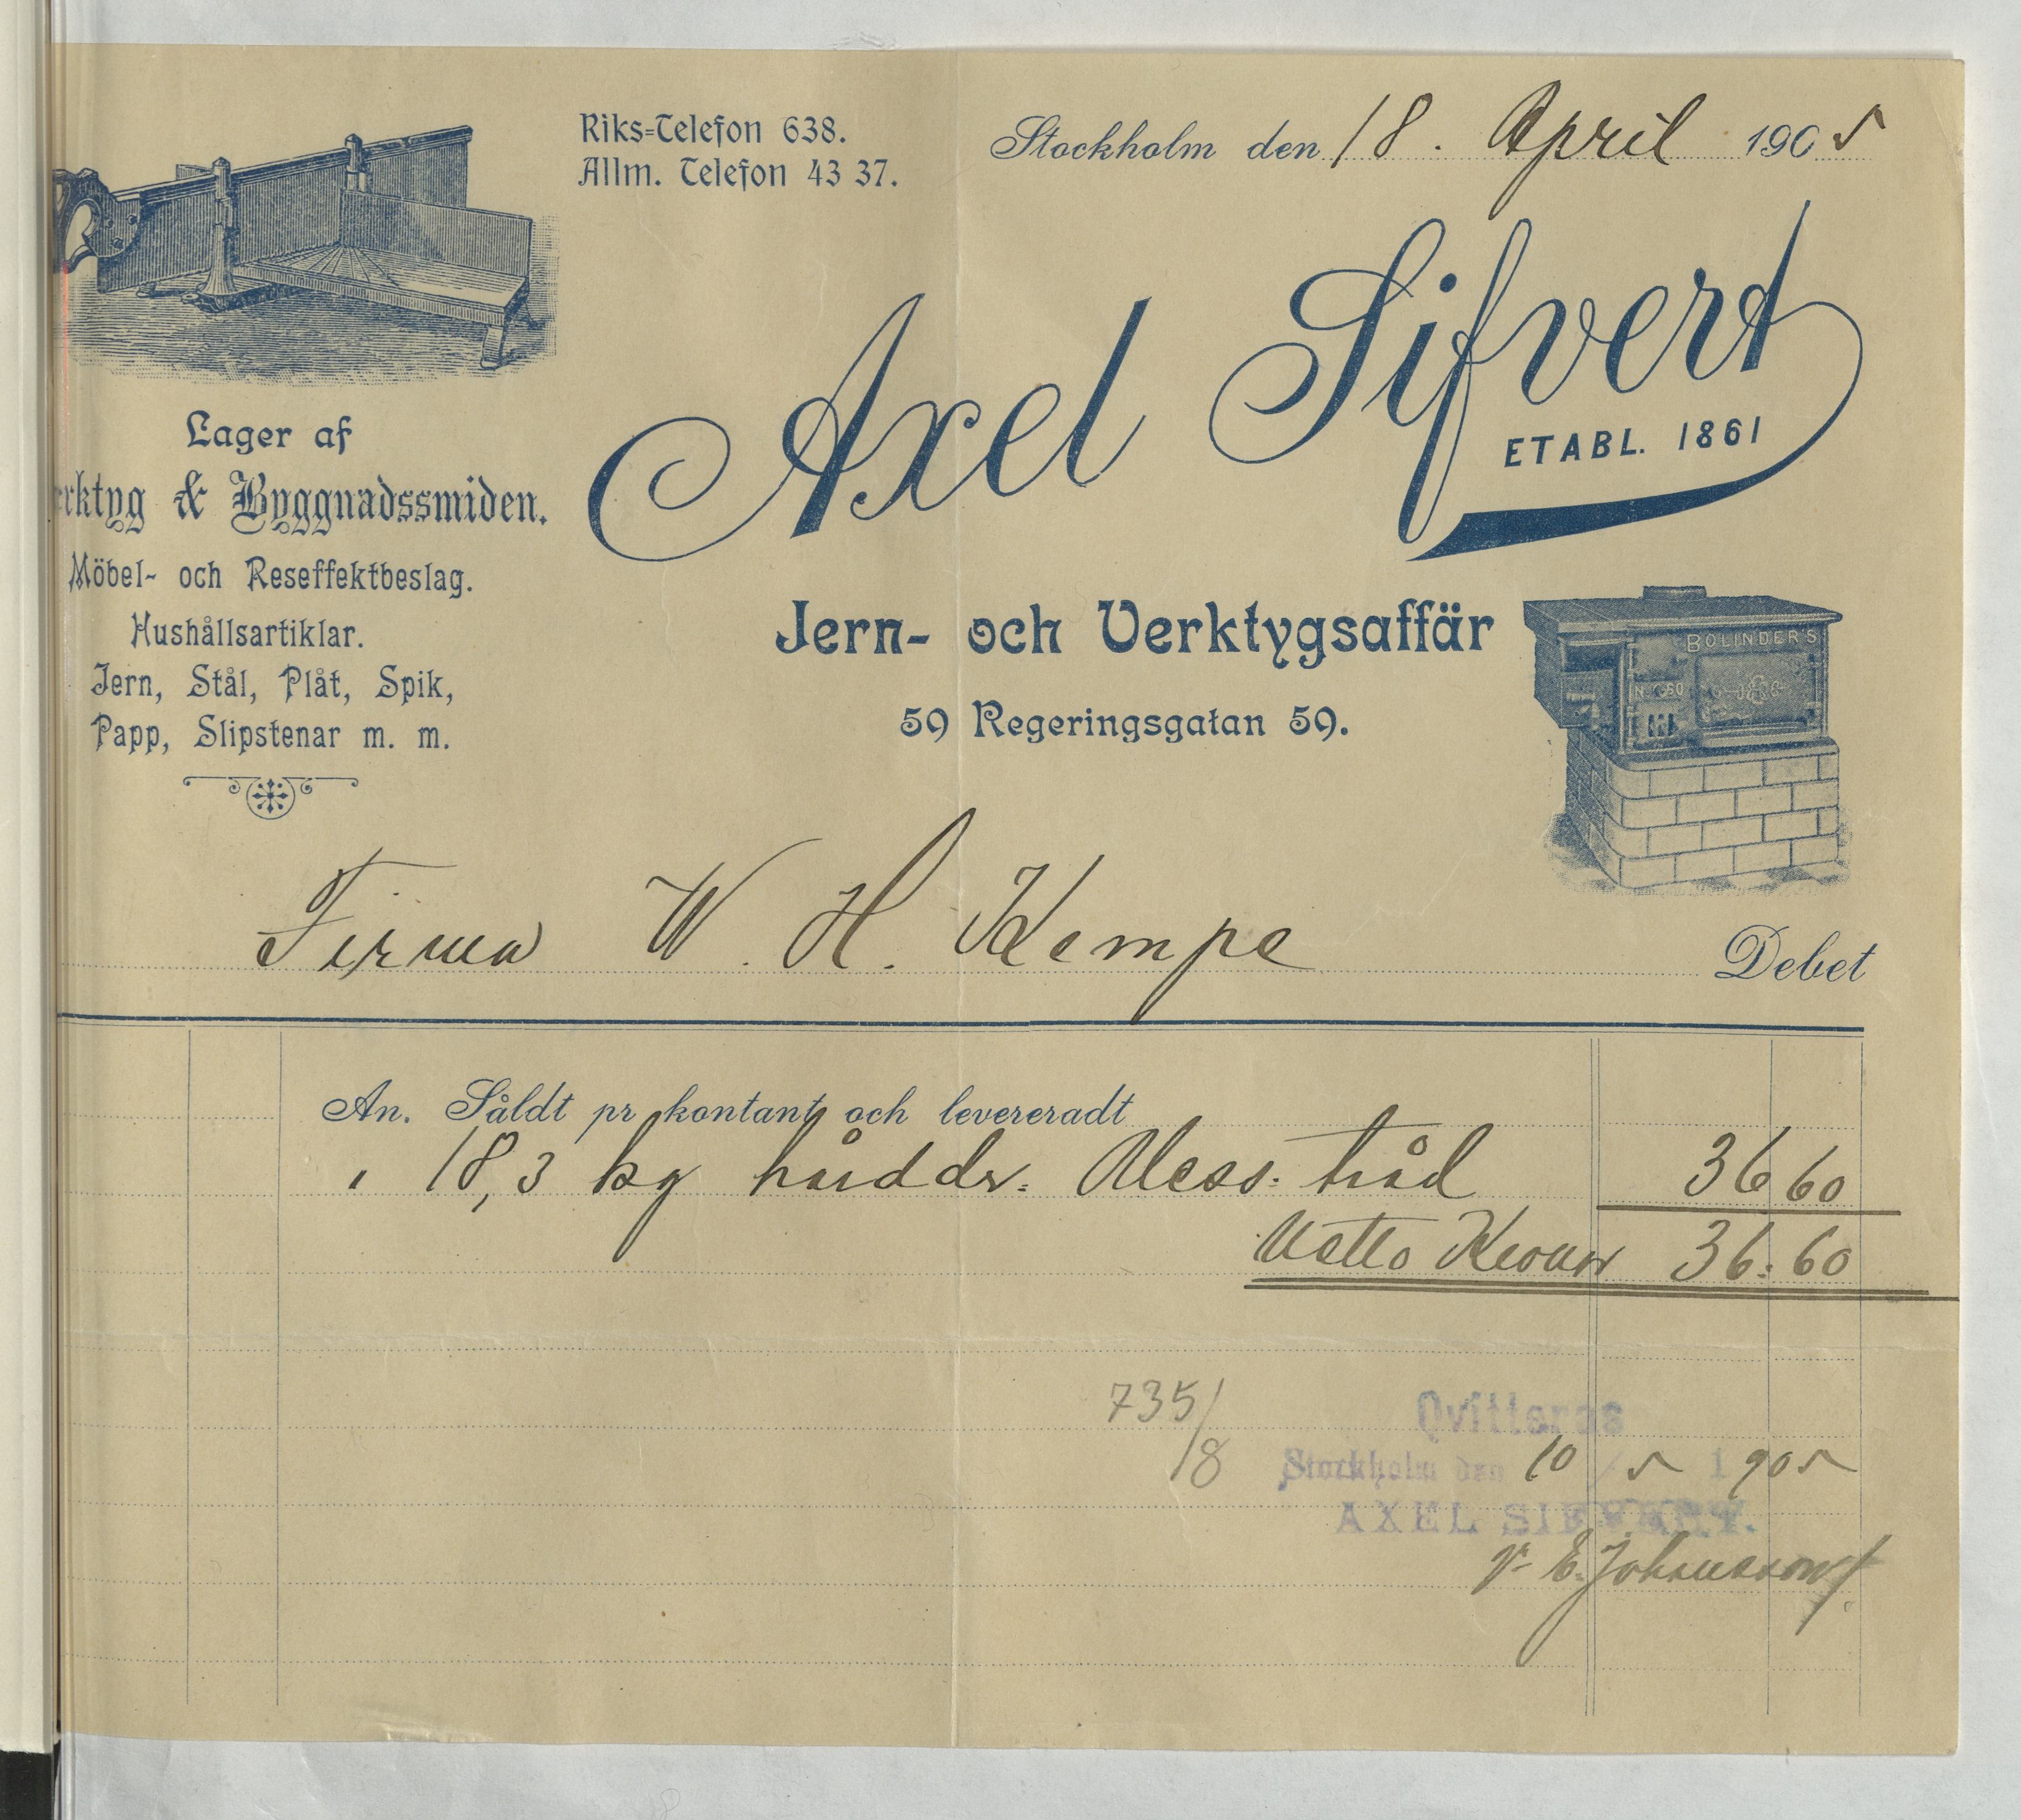 Riks=Telefon 638.
Allm. Telefon 43 37.
Stockholm den 18. April 1905
Axel Sifvert
ETABL. 1861
Lager af
rktyg & Byggnadssmiden.
Möbel- och Reseffektbeslag.
Hushållsartiklar.
Jern, Stål, Plåt, Spik,
Papp, Slipstenar m. m.
Jern- och Verktygsaffär
59 Regeringsgatan 59.
BOLINDERS
Firma W. H. Kempe Debet
An. Såldt pr kontant och levereradt
" 18,3 kg hårddr. Mess. tråd 36 60
Netto Kronor 36:60
735/8
Qvitteras
Stockholm den 10/5 1905
AXEL SIFVERT.
pr E. Johansson